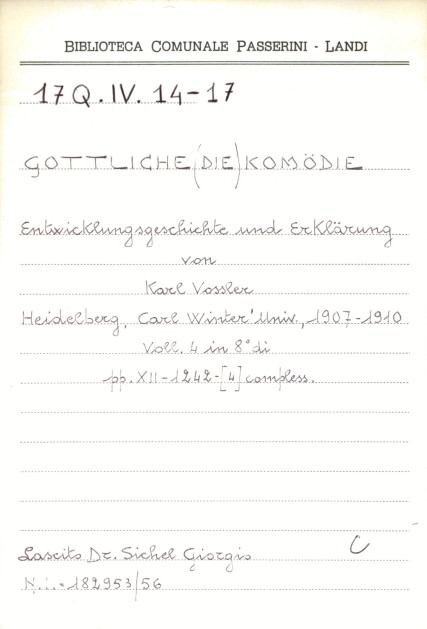 BIBLIOTECA COMUNALE PASSERINI - LANDI
17 Q. IV. 14-17
GOTTLICHE (DIE) KOMÖDIE
Entwicklungsgeschichte und Erklärung
von
Karl Vossler
Heidelberg, Carl Winter' Univ., 1907-1910
Voll. 4 in 8° di
pp. XII-1242-[4] compless.
Lascito Dr. Sichel Giorgio
C
N.i. = 182953/56